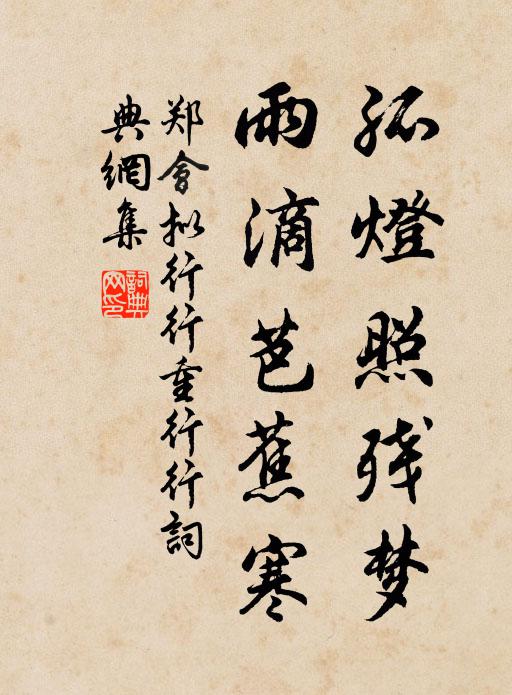 孤燈照残梦
雨滴芭蕉寒
郑會拟行行重行行詞
典網集
詞典网印